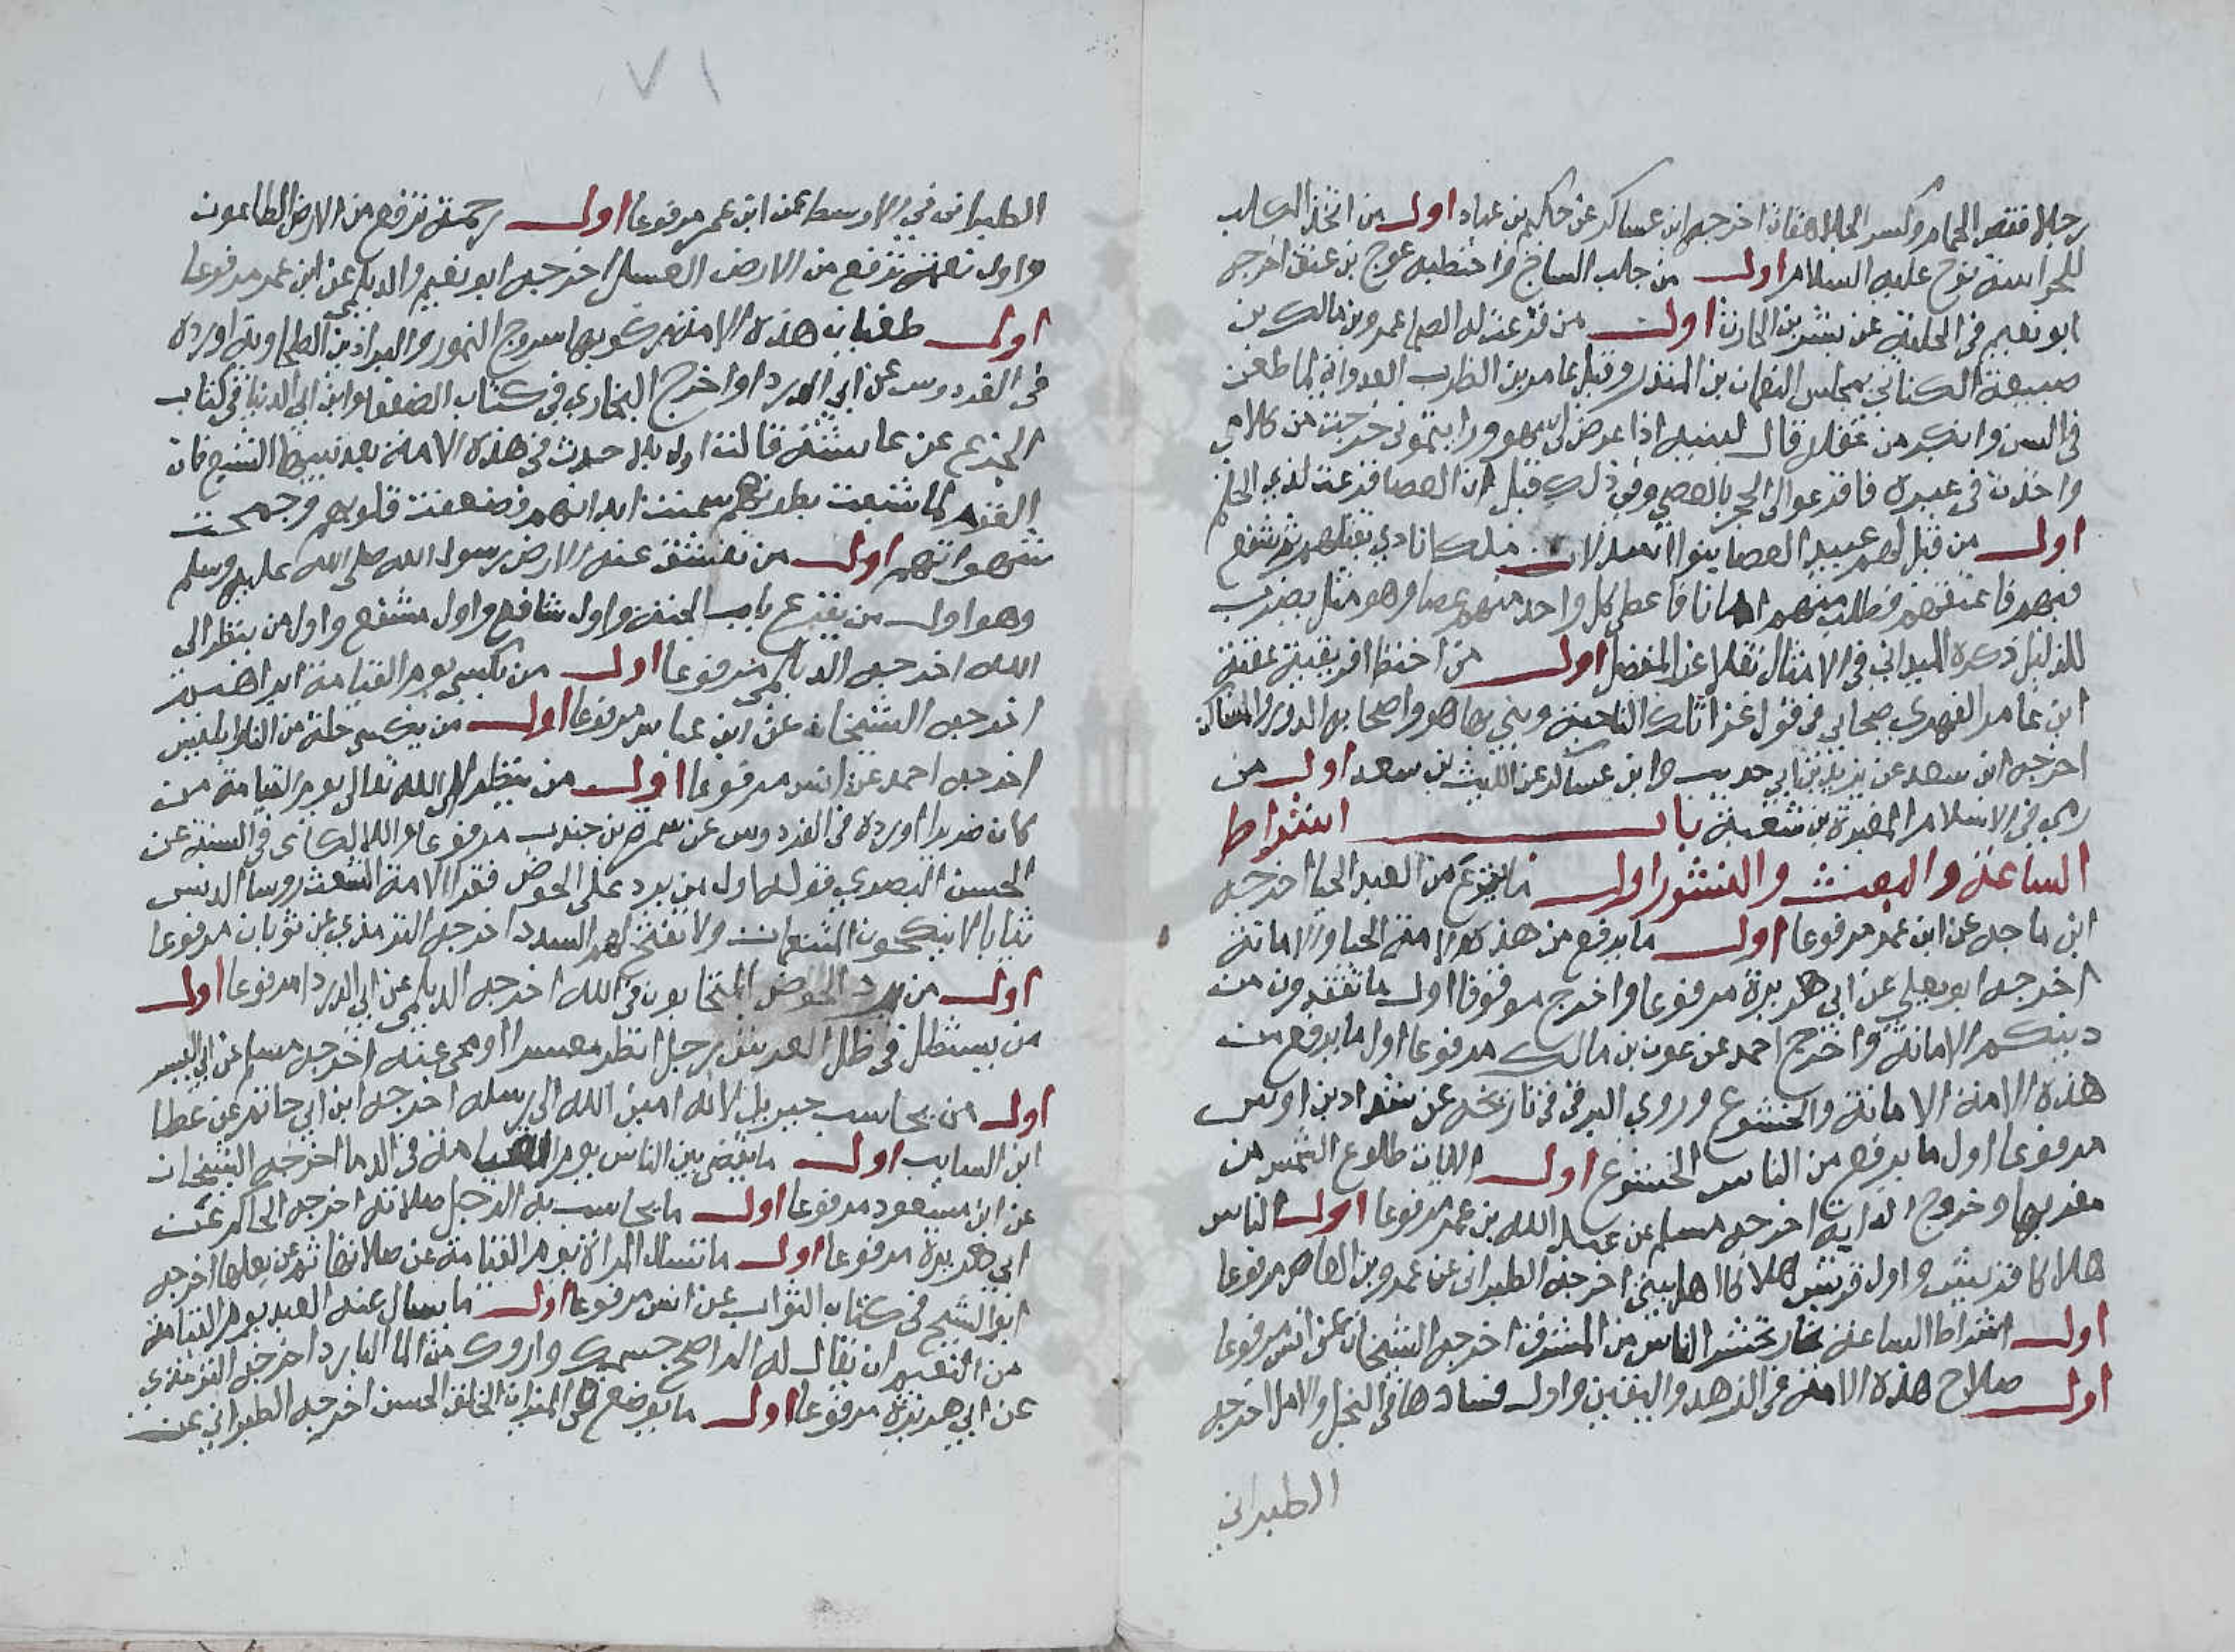 رجلا فقص الحمام وكسر الجلاهقات اخرجه ابن عساكر عن حكيم بن عباد اول من اتخذ الكلب
للحراسة نوح عليه السلام اول من جلب الساج واختطبه عوج بن عنق اخرجه
ابو نعيم في الحلية عن بشر بن الحارث اول من قرعت له العصا عمرو بن مالك بن
ضبيعة الكناني بمجلس النعمان بن المنذر وقيل عامر بن الظرب العدواني لما طعن
في السن وانكر من عقله قال لبنيه اذا عرض لي سهو ورايتموني خرجت من كلامي
واخذت في غيره فاقرعوا لي المجن بالعصي وفي ذلك قيل ان العصا قرعت لذي الحلم
اول من قيل لهم عبيد العصا بنوا اسد لان ملكا نادي بقتلهم ثم شفع
فيهم فاعتقهم فطلب منهم امانا فاعطى كل واحد منهم عصا وهو مثل يضرب
للذليل ذكره الميداني في الامثال نقلا عن المفضل اول من اختط افريقية عقبة
ابن عامر الفهري صحابي في قول غزا تلك الناحية وبني بها هو واصحابه الدور والمساكن
اخرجه ابن سعد عن يزيد بن ابي حبيب وابن عساكر عن الليث بن سعد اول من
رمي في الاسلام المغيرة بن شعبة باب اشتراط
الساعة والبعث والنشور اول ما ينزع من العبد الحيا اخرجه
ابن ماجه عن ابن عمر مرفوعا اول ما يرفع من هذه الامة الحيا والامانة
اخرجه ابو يعلي عن ابي هريرة مرفوعا واخرج موقوفا اول ما تفقدون من
دينكم الامانة واخرج احمد عن عوف بن مالك مرفوعا اول ما يرفع من
هذه الامة الامانة والخشوع وروي البرقي في تاريخه عن شداد بن اوس
مرفوعا اول ما يرفع من الناس الخشوع اول الايات طلوع الشمس من
مغربها وخروج الدابة اخرجه مسلم عن عبد الله بن عمر مرفوعا اول الناس
هلاكا قريش واول قريش هلاكا اهل بيتي اخرجه الطبراني عن عمرو بن العاص مرفوعا
اول اشتراط الساعة نار تحشر الناس من المشرق اخرجه الشيخان عن انس مرفوعا
اول صلاح هذه الامة في الزهد واليقين واول فسادها في البخل والامل اخرجه
الطبراني
٧١
الطبراني في الاوسط عن ابن عمر مرفوعا اول رحمة ترفع من الارض الطاعون
واول نعمة ترفع من الارض العسل اخرجه ابو نعيم والديلمي عن ابن عمر مرفوعا
اول طغيان هذه الامة ركوبها سروج النمور والبراذين الطخاوية اورده
في الفردوس عن ابي الدرداء واخرج البخاري في كتاب الضعفا وابن ابي الدنيا في كتاب
الجزع عن عايشة قالت اول بلا حدث في هذه الامة بعد نبيها الشبع فان
القوم لما شبعت بطونهم سمنت ابدانهم وضعفت قلوبهم وجمحت
شهواتهم اول من تنشق عنه الارض رسول الله صلى الله عليه وسلم
وهو اول من يقرع باب الجنة واول شافع واول مشفع واول من ينظر الى
الله اخرجه الديلمي مرفوعا اول من يكسي يوم القيامة ابراهيم
اخرجه الشيخان عن ابن عباس مرفوعا اول من يكسى حلة من النار ابليس
اخرجه احمد عن انس مرفوعا اول من ينظر الى الله تعالى يوم القيامة من
كان ضريرا اورده في الفردوس عن سمرة بن جندب مرفوعا واللالكاى في السنة عن
الحسن البصري قوله اول من يرد على الحوض فقرا الامة الشعث روسا الدنس
ثيابا لا ينكحون المتنعمات ولا تفتح لهم السدد اخرجه الترمذي عن ثوبان مرفوعا
اول من يرد الحوض المتحابون في الله اخرجه الديلمي عن ابي الدرداء مرفوعا اول
من يستظل في ظل العرش رجل انظر معسرا او محى عنه اخرجه مسلم عن ابي اليسر
اول من يحاسب جبريل لانه امين الله الى رسله اخرجه ابن ابي حاتم عن عطا
ابن السايب اول ما يقضى بين الناس يوم القيامة في الدما اخرجه الشيخان
عن ابن مسعود مرفوعا اول ما يحاسب به الرجل صلاته اخرجه الحاكم عن
ابي هريرة مرفوعا اول ما تسال المراة يوم القيامة عن صلاتها ثم عن بعلها اخرجه
ابو الشيخ في كتاب الثواب عن انس مرفوعا اول ما يسال عنه العبد يوم القيامة
من النعيم ان يقال له الم اصح جسمك واروك من الما البارد اخرجه الترمذي
عن ابي هريرة مرفوعا اول ما يوضع في الميزان الخلق الحسن اخرجه الطبراني عن